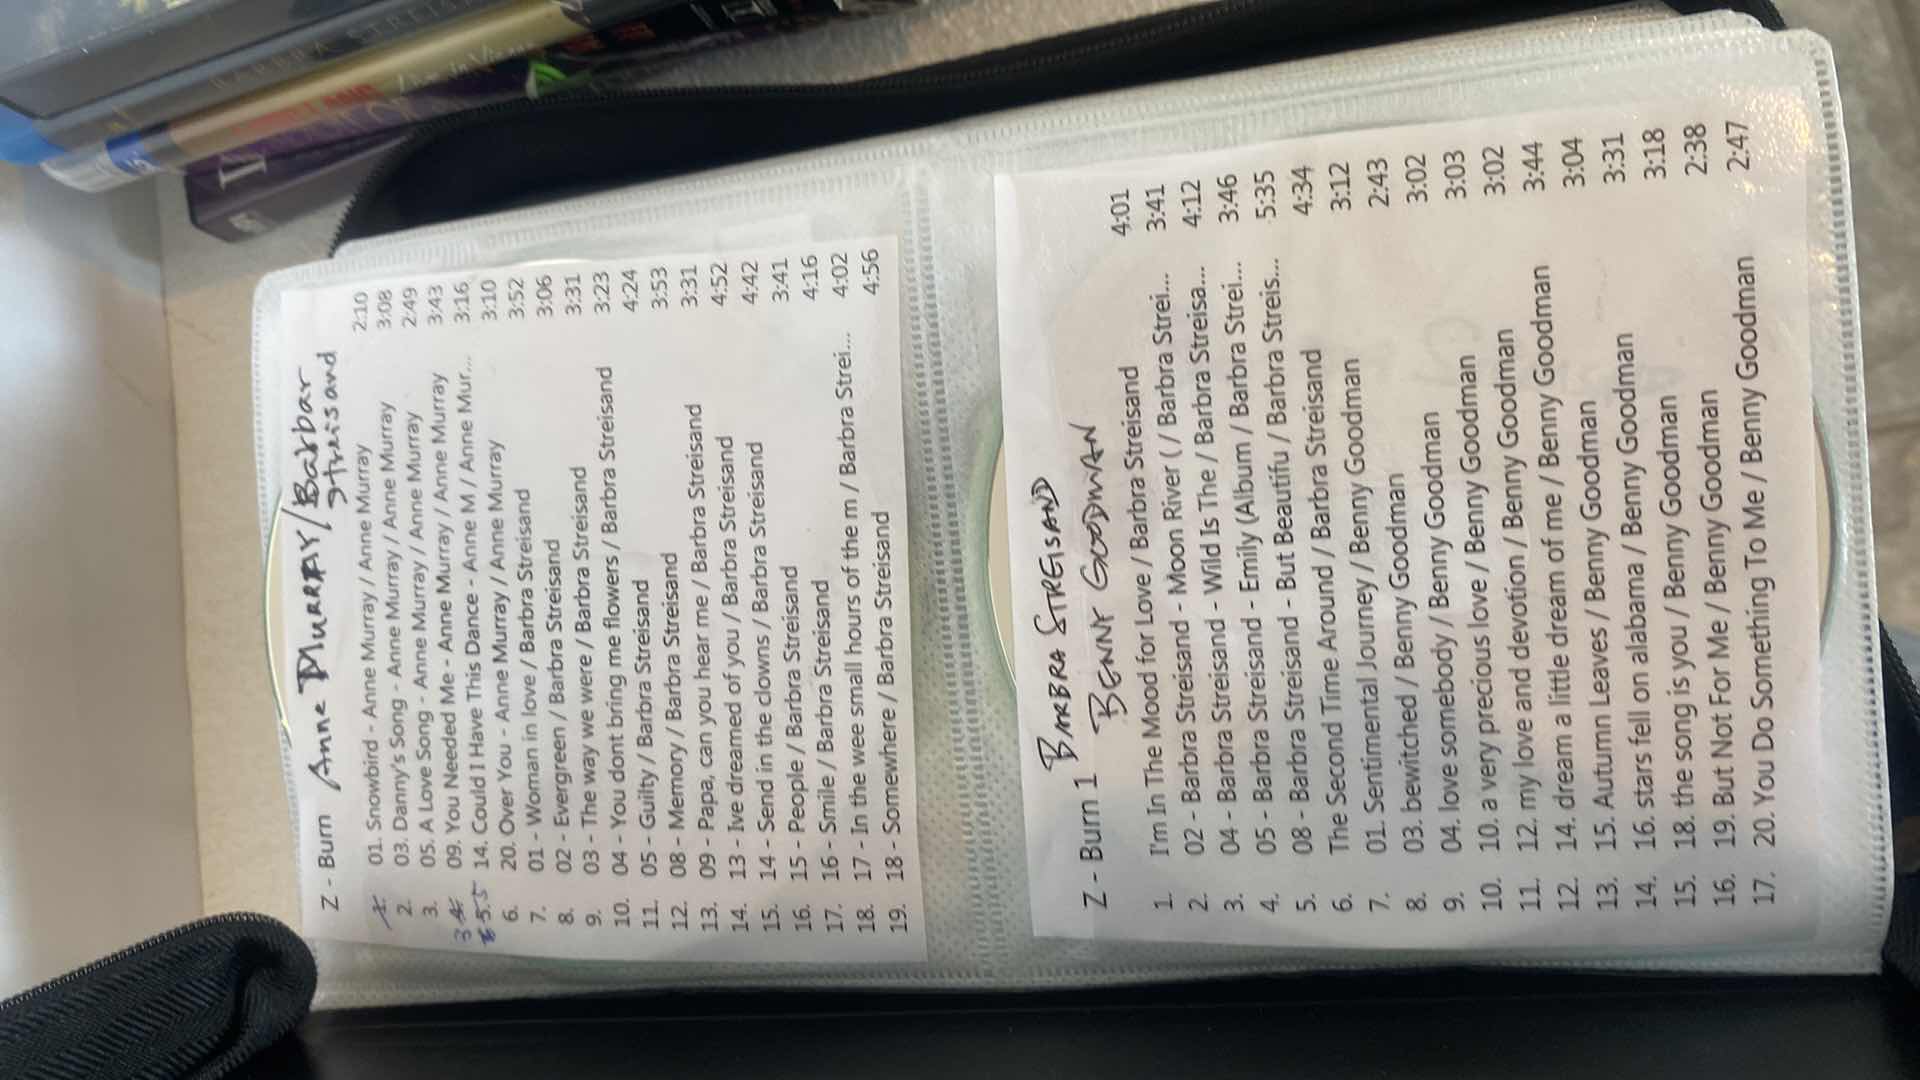 BARBRA STREISA
Z - Burn Anne Murray/Barbar
Streisand
1. 01. Snowbird - Anne Murray / Anne Murray 2:10
2. 03. Danny's Song - Anne Murray / Anne Murray 3:08
3. 05. A Love Song - Anne Murray / Anne Murray 2:49
3 4. 09. You Needed Me - Anne Murray / Anne Murray 3:43
5. 5 14. Could I Have This Dance - Anne M / Anne Mur... 3:16
6. 20. Over You - Anne Murray / Anne Murray 3:10
7. 01 - Woman in love / Barbra Streisand 3:52
8. 02 - Evergreen / Barbra Streisand 3:06
9. 03 - The way we were / Barbra Streisand 3:31
10. 04 - You dont bring me flowers / Barbra Streisand 3:23
11. 05 - Guilty / Barbra Streisand 4:24
12. 08 - Memory / Barbra Streisand 3:53
13. 09 - Papa, can you hear me / Barbra Streisand 3:31
14. 13 - Ive dreamed of you / Barbra Streisand 4:52
15. 14 - Send in the clowns / Barbra Streisand 4:42
16. 15 - People / Barbra Streisand 3:41
17. 16 - Smile / Barbra Streisand 4:16
18. 17 - In the wee small hours of the m / Barbra Strei... 4:02
19. 18 - Somewhere / Barbra Streisand 4:56
BARBRA STREISAND
Z - Burn 1 BENNY GOODMAN
1. I'm In The Mood for Love / Barbra Streisand 4:01
2. 02 - Barbra Streisand - Moon River ( / Barbra Strei... 3:41
3. 04 - Barbra Streisand - Wild Is The / Barbra Streisa... 4:12
4. 05 - Barbra Streisand - Emily (Album / Barbra Strei... 3:46
5. 08 - Barbra Streisand - But Beautifu / Barbra Streis... 5:35
6. The Second Time Around / Barbra Streisand 4:34
7. 01. Sentimental Journey / Benny Goodman 3:12
8. 03. bewitched / Benny Goodman 2:43
9. 04. love somebody / Benny Goodman 3:02
10. 10. a very precious love / Benny Goodman 3:03
11. 12. my love and devotion / Benny Goodman 3:02
12. 14. dream a little dream of me / Benny Goodman 3:44
13. 15. Autumn Leaves / Benny Goodman 3:04
14. 16. stars fell on alabama / Benny Goodman 3:31
15. 18. the song is you / Benny Goodman 3:18
16. 19. But Not For Me / Benny Goodman 2:38
17. 20. You Do Something To Me / Benny Goodman 2:47